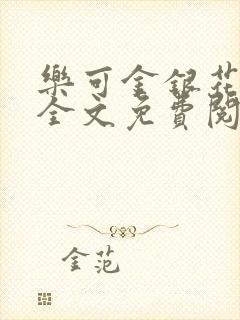 樂可金銀花
全文免費閱
金范